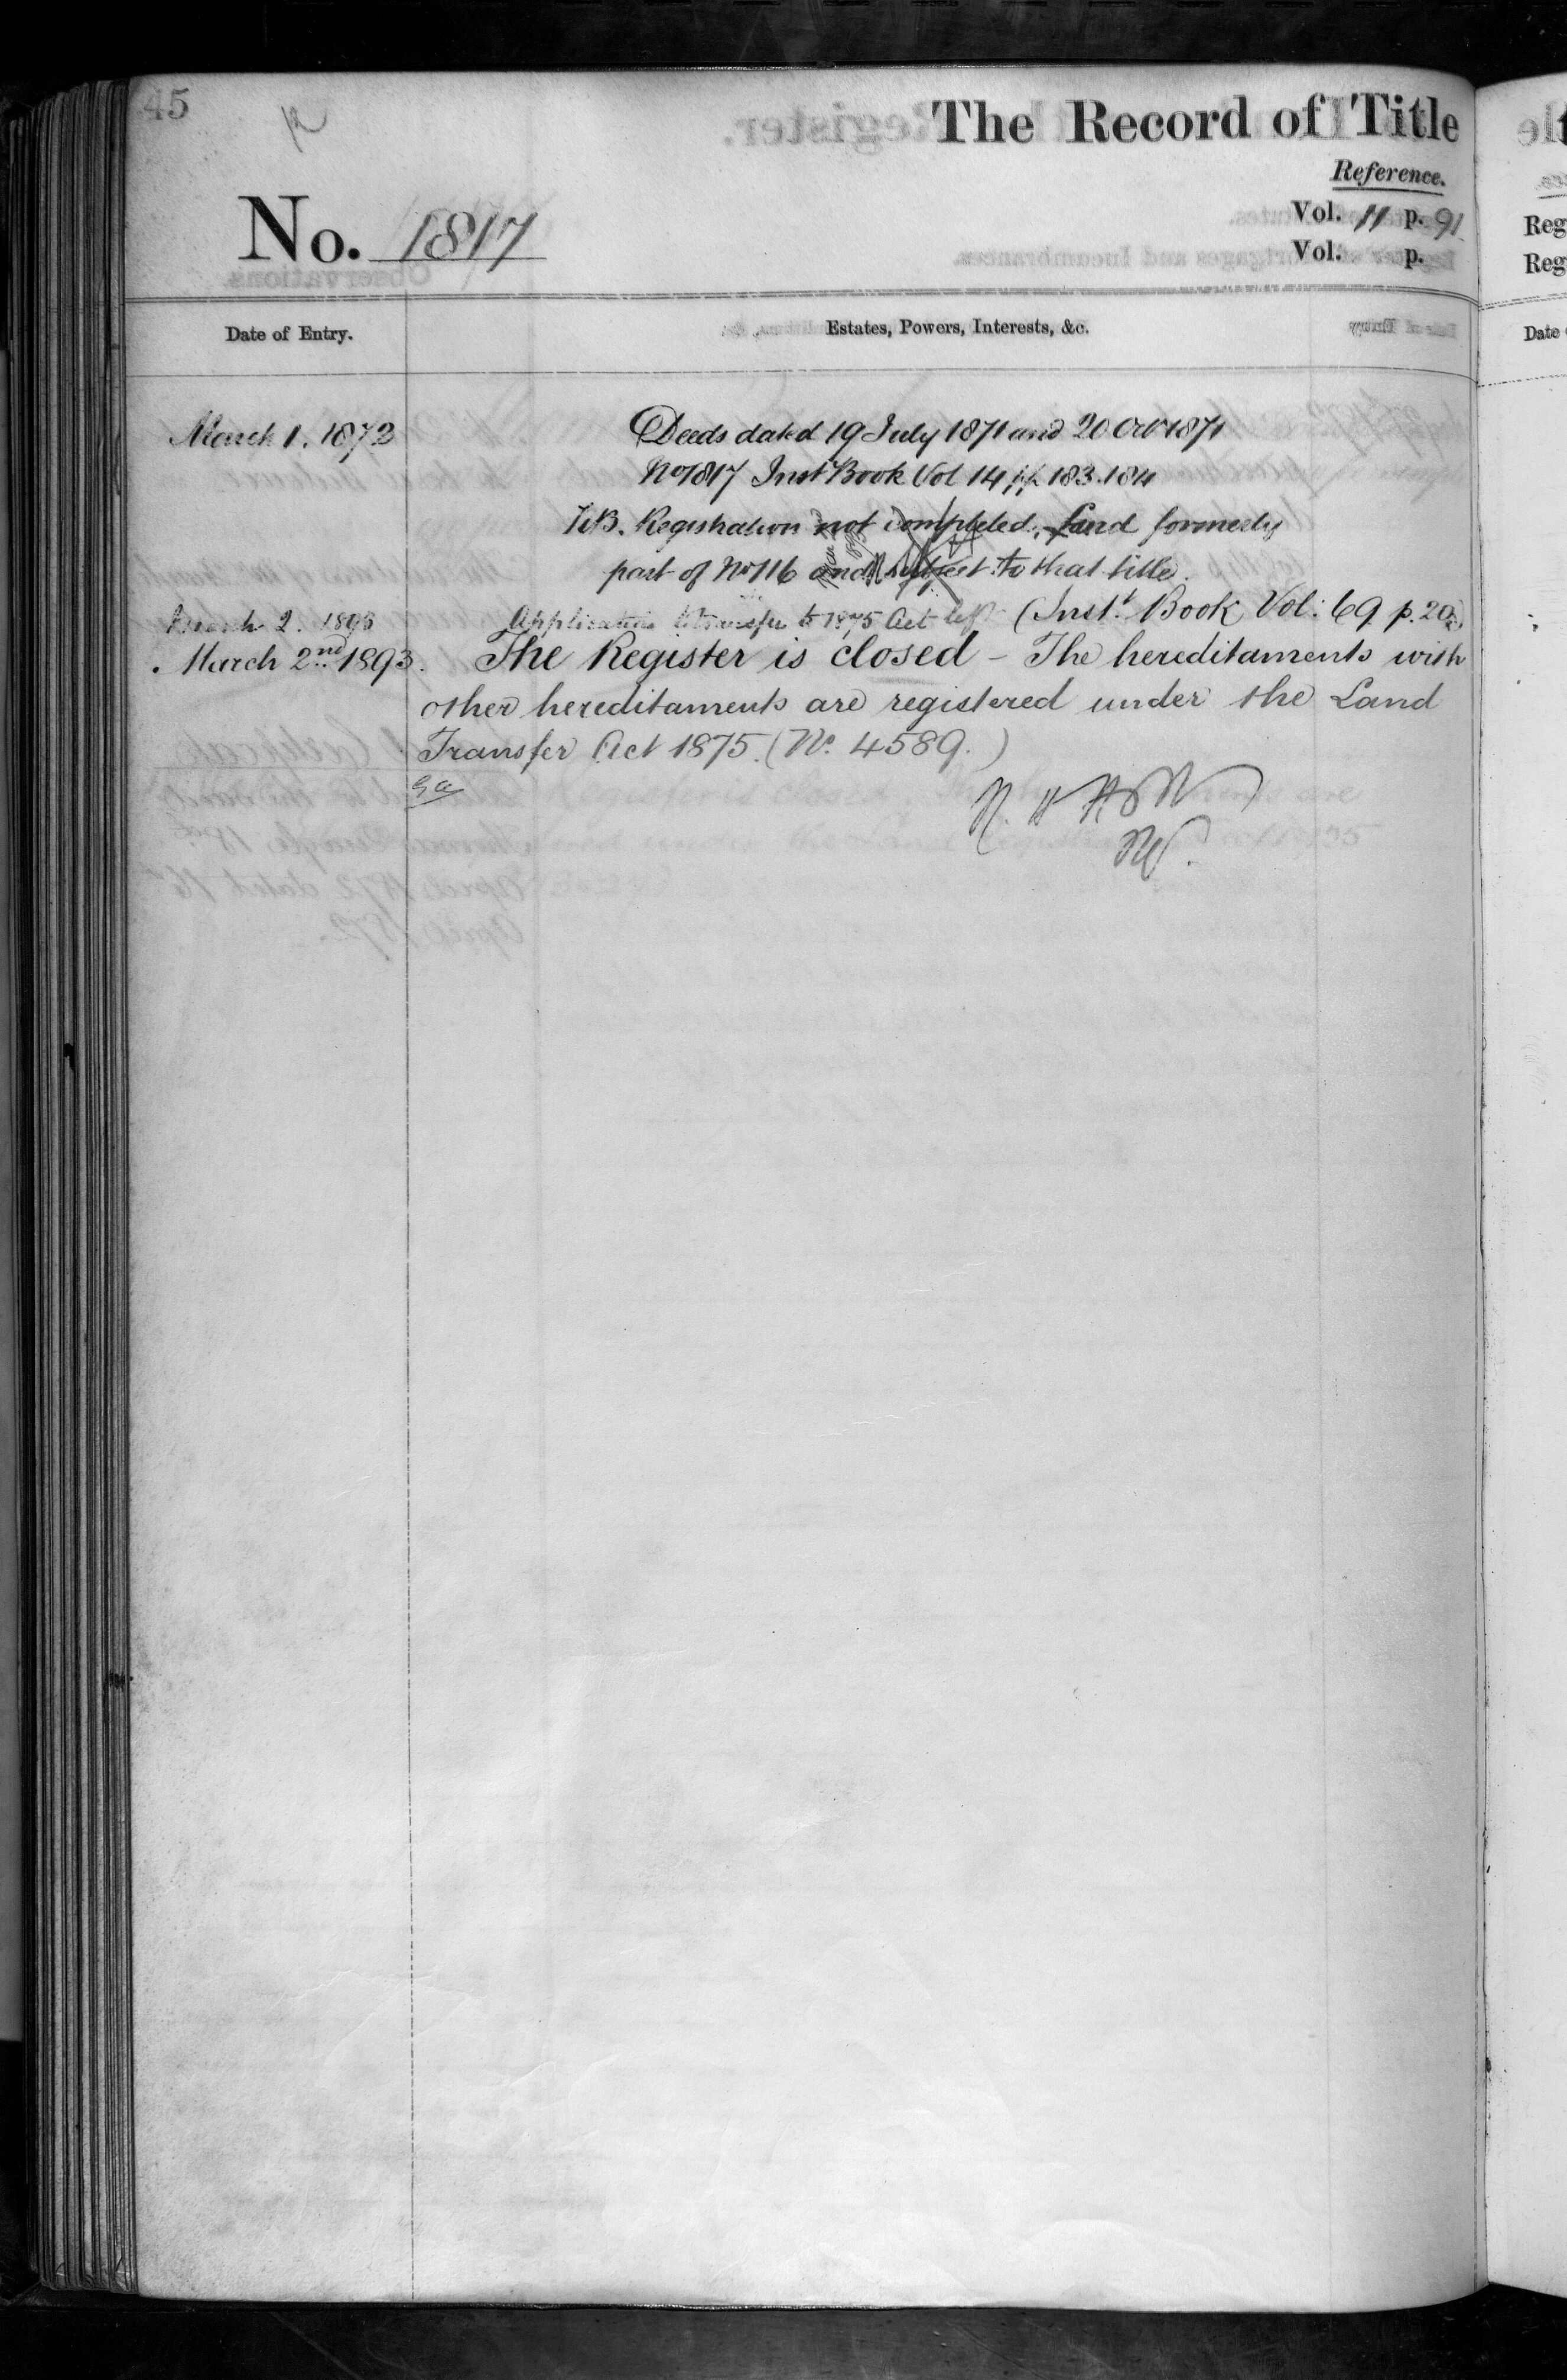 45
The Record of Title
Reference.
No. 1817
Vol. 11 p. 91
Vol. p.
Date of Entry.
Estates, Powers, Interests, &c.
March 1. 1872
Deeds dated 19 July 1871 and 20 Oct 1871
No 1817 Inst Book Vol 14 pp 183.184
NB. Registration not completed. Land formerly
part of No 116 and subject to that title.
March 2. 1893
Application to transfer to 1875 Act left (Inst.t Book Vol: 69 p. 202)
March 2nd 1893.
The Register is closed – The hereditaments with
other hereditaments are registered under the Land
Transfer Act 1875. (No. 4589.)
Reg
Reg
Date